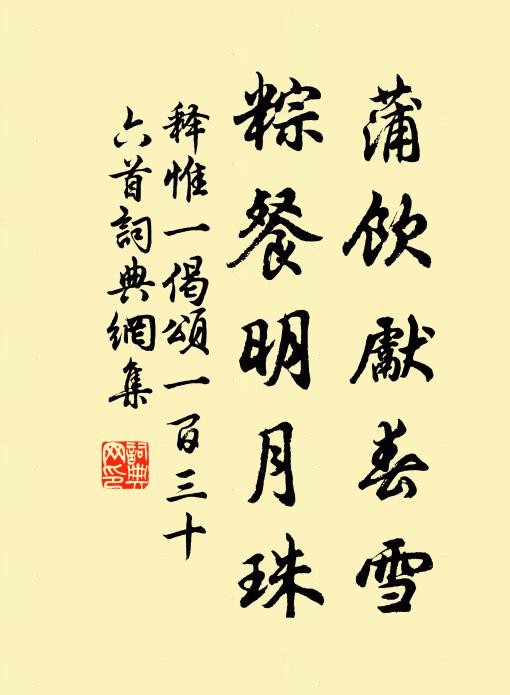 蒲飲獻春雪
粽餐明月珠
释惟一偈頌一百三十
六首詞典網集
詞典
网印